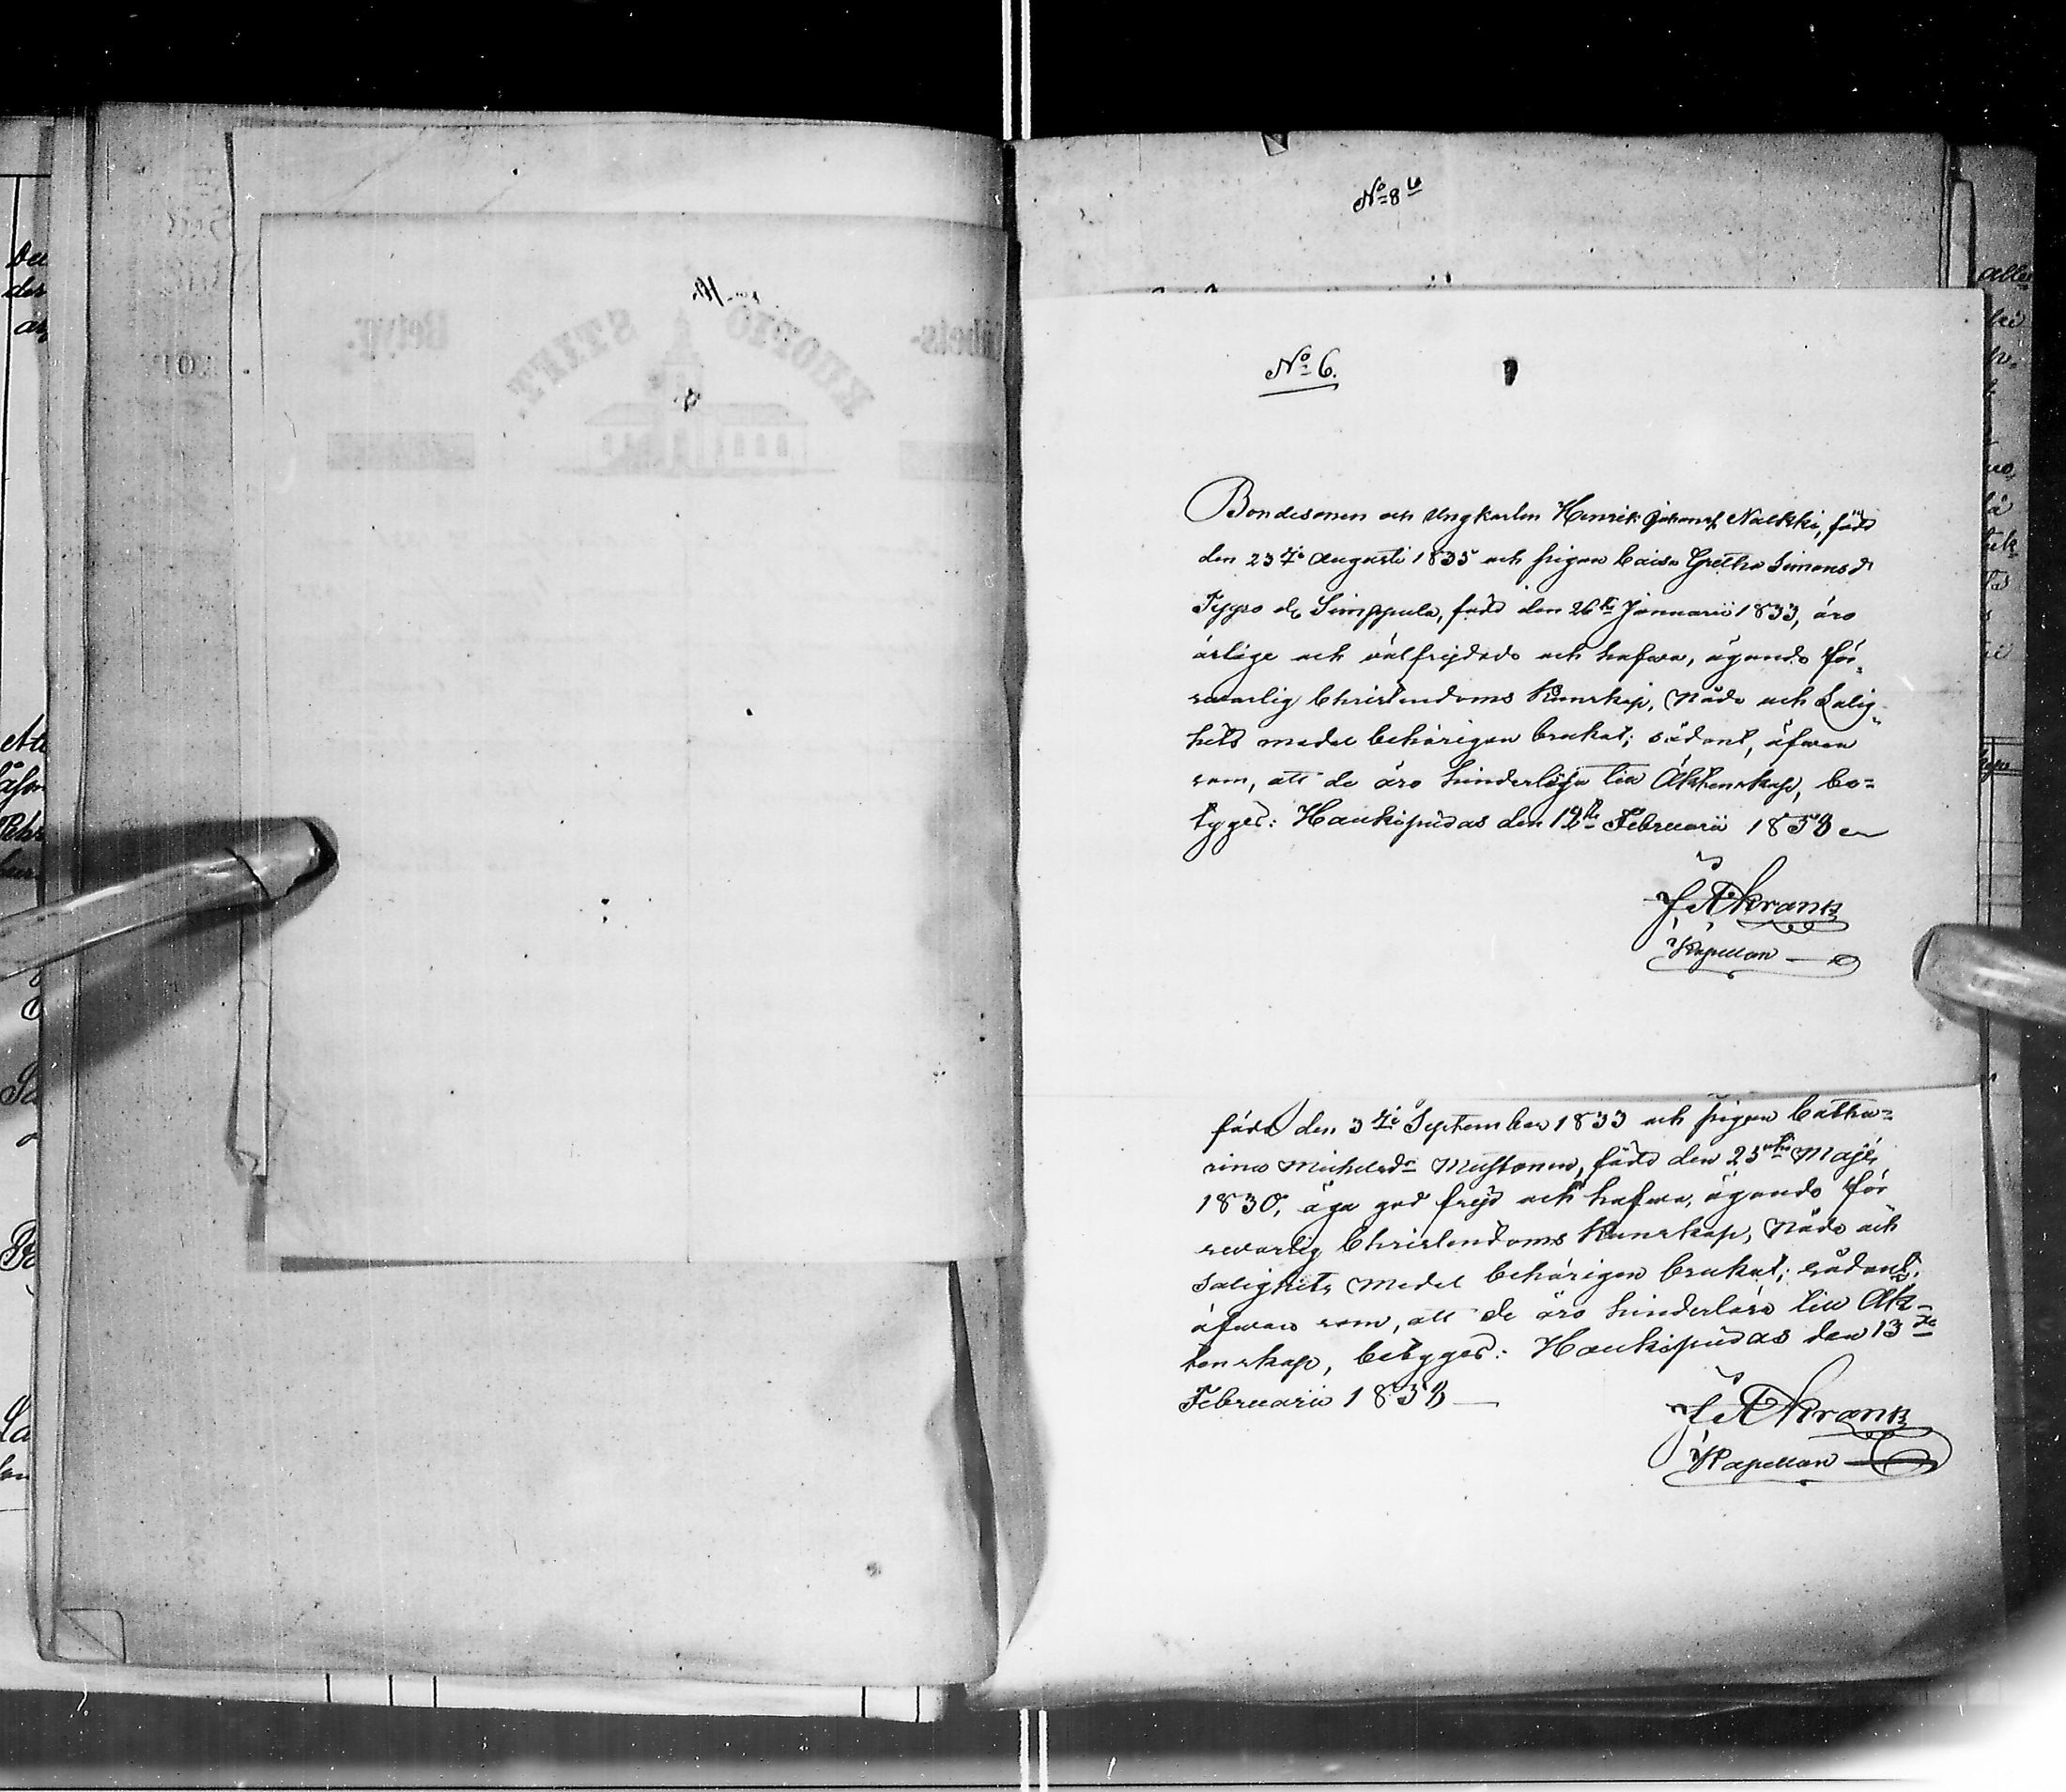 No 8
No 6.
Bondesonen och Ungkarlen Henrik Johans. Nalkki, född
den 23dje Augusti 1835 och pigan Caisa Gretha Simonsdr
Tyyro el. Simppula, född den 26te Januarii 1833, äro
ärlige och välfrejdade och hafva, ägande för-
svarlig Christendoms Kunskap, Nåde och Salig-
hets medel behörigen brukat; sådant, äfven
som, att de äro hinderlösa till Äktenskap, be-
tyges: Haukipudas den 12te Februarii 1858
J A Krank
Kapellan
född den 3dje September 1833 och pigan Catha-
rina Michelsdr Mustonen, född den 25te Maji
1830, äga god frejd och hafva, ägande för
svarlig Christendoms Kunskap, Nåde och
Salighets Medel behörigen brukat; sådant,
äfven som, att de äro hinderlöse till Äk-
tenskap, betyges: Haukipudas den 13de
Februarii 1858
J A Krank
Kapellan
KUOPIO STIFT.
Betyg.